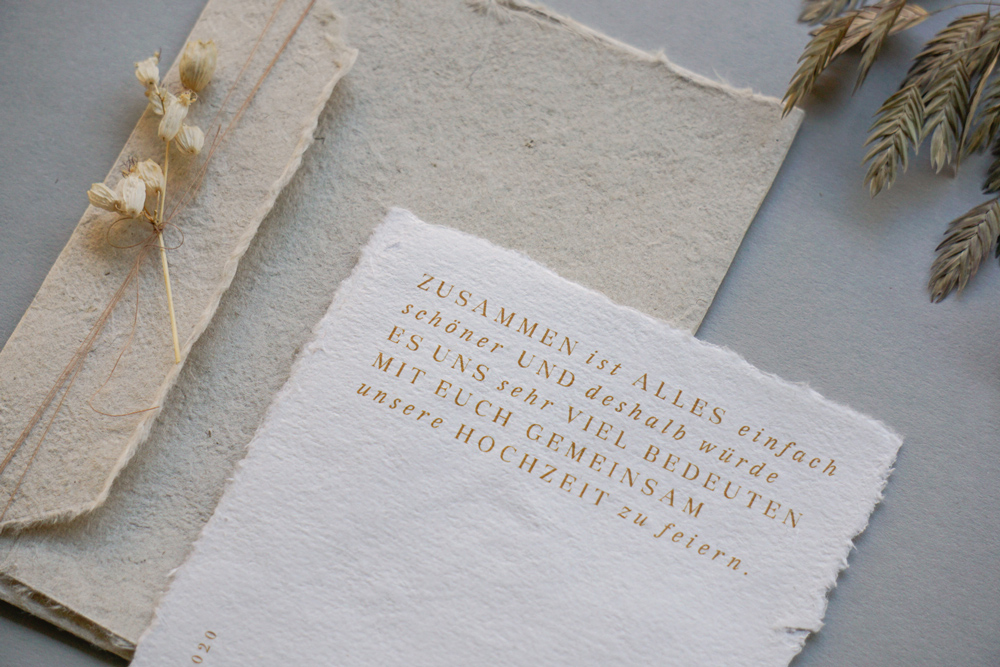 ZUSAMMEN ist ALLES einfach
schöner UND deshalb würde
ES UNS sehr VIEL BEDEUTEN
MIT EUCH GEMEINSAM
unsere HOCHZEIT zu feiern.
020